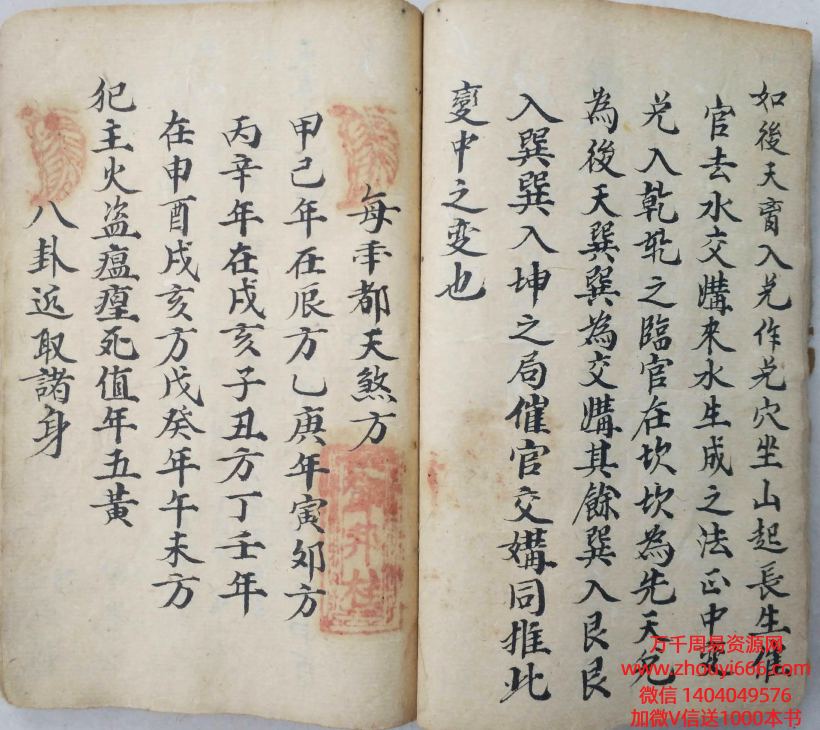 如後天賓入兑作兑穴坐山起長生催
官去水交媾来水生成之法正中
兑入乾乾之臨官在坎坎為先天兑
為後天巽巽為交媾其餘巽入艮艮
入巽巽入坤之局催官交媾同推此
變中之变也
每年都天煞方
甲己年在辰方乙庚年寅夘方
丙辛年在戌亥子丑方丁壬年
在申酉戌亥方戊癸年午未方
犯主火盗瘟瘟死值年五黄
八卦近取諸身
万千周易资源网
www.zhouyi666.com
微信 1404049576
加微V信送1000本书